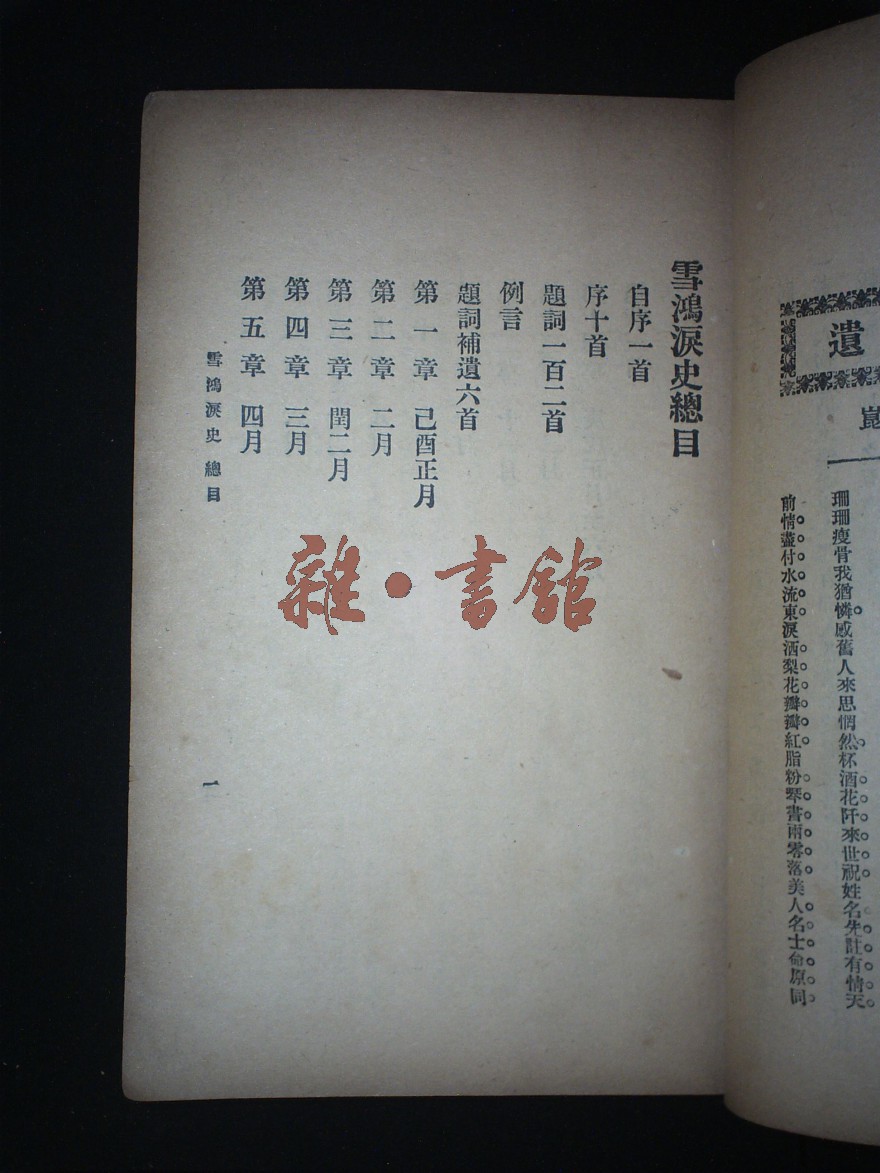 遺
崑
珊珊瘦骨我猶憐感舊人來思惘然杯酒花阡來世祝姓名先註有情天
前情盡付水流東淚洒梨花瓣瓣紅脂粉琴書兩零落美人名士命原同
雪鴻淚史總目
自序一首
序十首
題詞一百二首
例言
題詞補遺六首
第一章 己酉正月
第二章 二月
第三章 閏二月
第四章 三月
第五章 四月
雪鴻淚史 總目
一
雜·書館